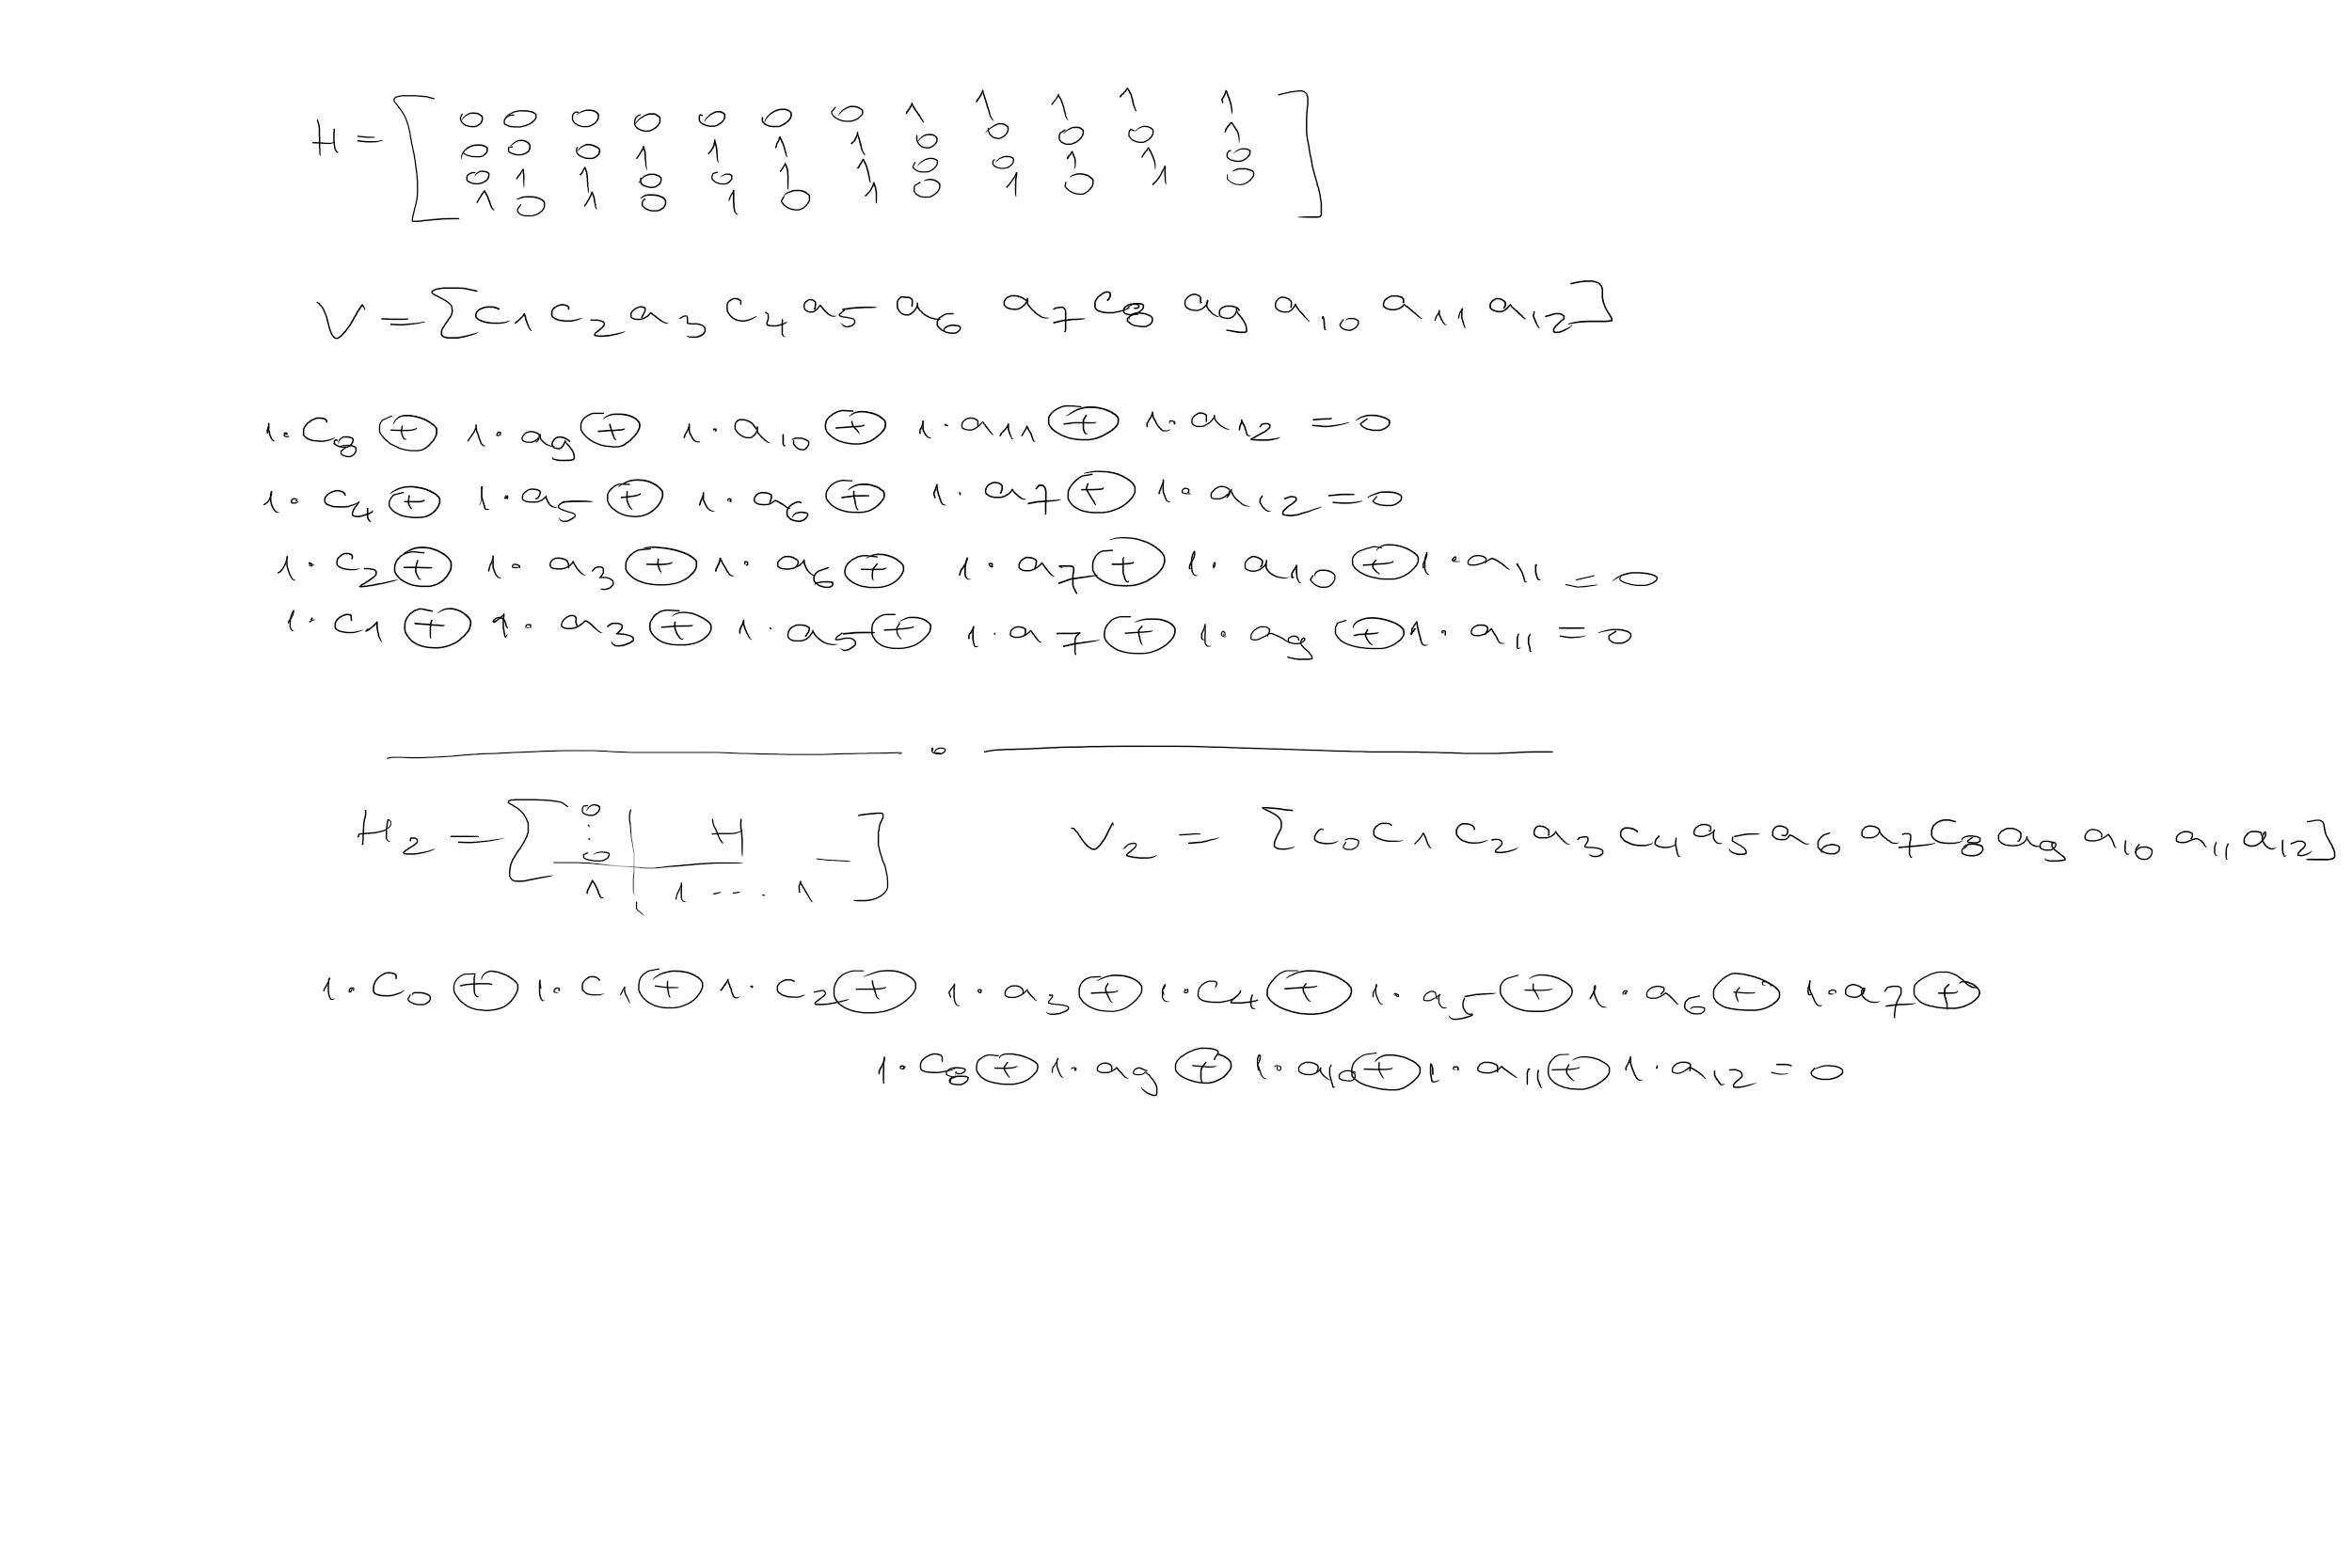 H = [ 0 0 0 0 0 0 0 1 1 1 1 1
0 0 0 1 1 1 1 0 0 0 0 1
0 1 1 0 0 1 1 0 0 1 1 0
1 0 1 0 1 0 1 0 1 0 1 0 ]
V = [c1 c2 a3 c4 a5 a6 a7 c8 a9 a10 a11 a12]
1·c8 ⊕ 1·a9 ⊕ 1·a10 ⊕ 1·a11 ⊕ 1·a12 = 0
1·c4 ⊕ 1·a5 ⊕ 1·a6 ⊕ 1·a7 ⊕ 1·a12 = 0
1·c2 ⊕ 1·a3 ⊕ 1·a6 ⊕ 1·a7 ⊕ 1·a10 ⊕ 1·a11 = 0
1·c1 ⊕ 1·a3 ⊕ 1·a5 ⊕ 1·a7 ⊕ 1·a9 ⊕ 1·a11 = 0
H2 = [ 0 ⋮ 0 | H
1 | 1 ---- 1 ]
V2 = [c0 c1 c2 a3 c4 a5 a6 a7 c8 a9 a10 a11 a12]
1·c0 ⊕ 1·c1 ⊕ 1·c2 ⊕ 1·a3 ⊕ 1·c4 ⊕ 1·a5 ⊕ 1·a6 ⊕ 1·a7 ⊕
1·c8 ⊕ 1·a9 ⊕ 1·a10 ⊕ 1·a11 ⊕ 1·a12 = 0